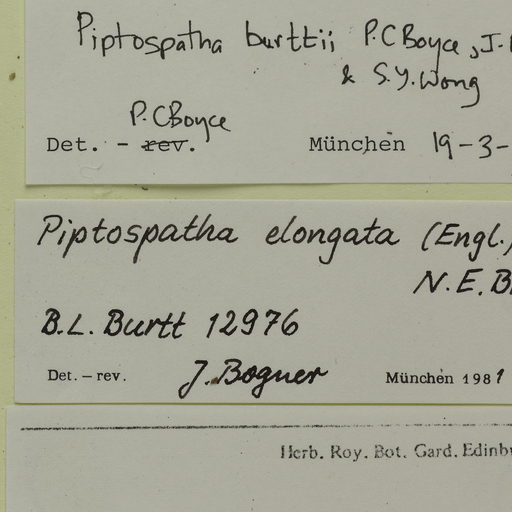 Piptospatha burttii P.C Boyce, J.
& S.Y. Wong
P.C Boyce
Det. - rev. München 19-3-
Piptospatha elongata (Engl.)
N.E.B
B.L. Burtt 12976
Det. – rev. J. Bogner München 1981
Herb. Roy. Bot. Gard. Edinb